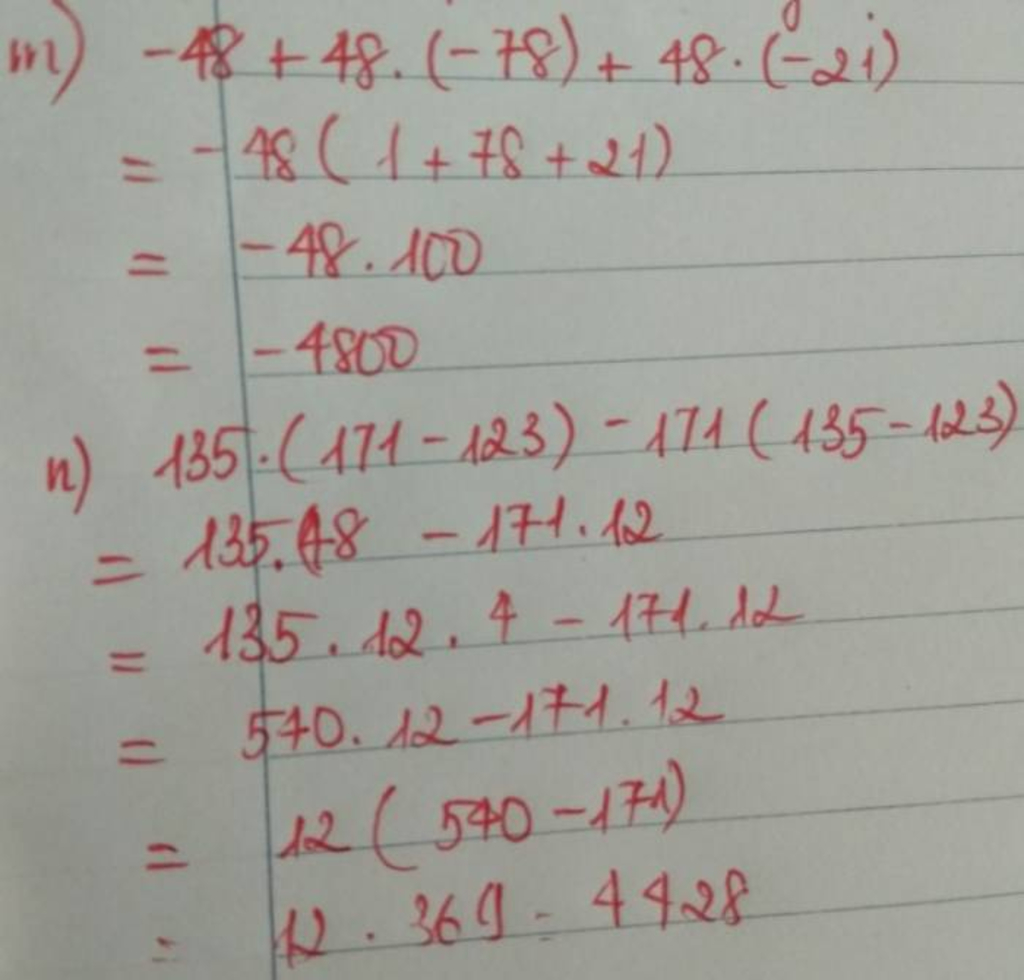 m) -48 + 48. (-78) + 48. (-21)
= -48 ( 1 + 78 + 21)
= -48. 100
= -4800
n) 135.(171-123) - 171 ( 135-123)
= 135.48 - 171. 12
= 135. 12. 4 - 171. 12
= 540. 12 - 171. 12
= 12 ( 540 - 171)
= 12. 369 = 4428